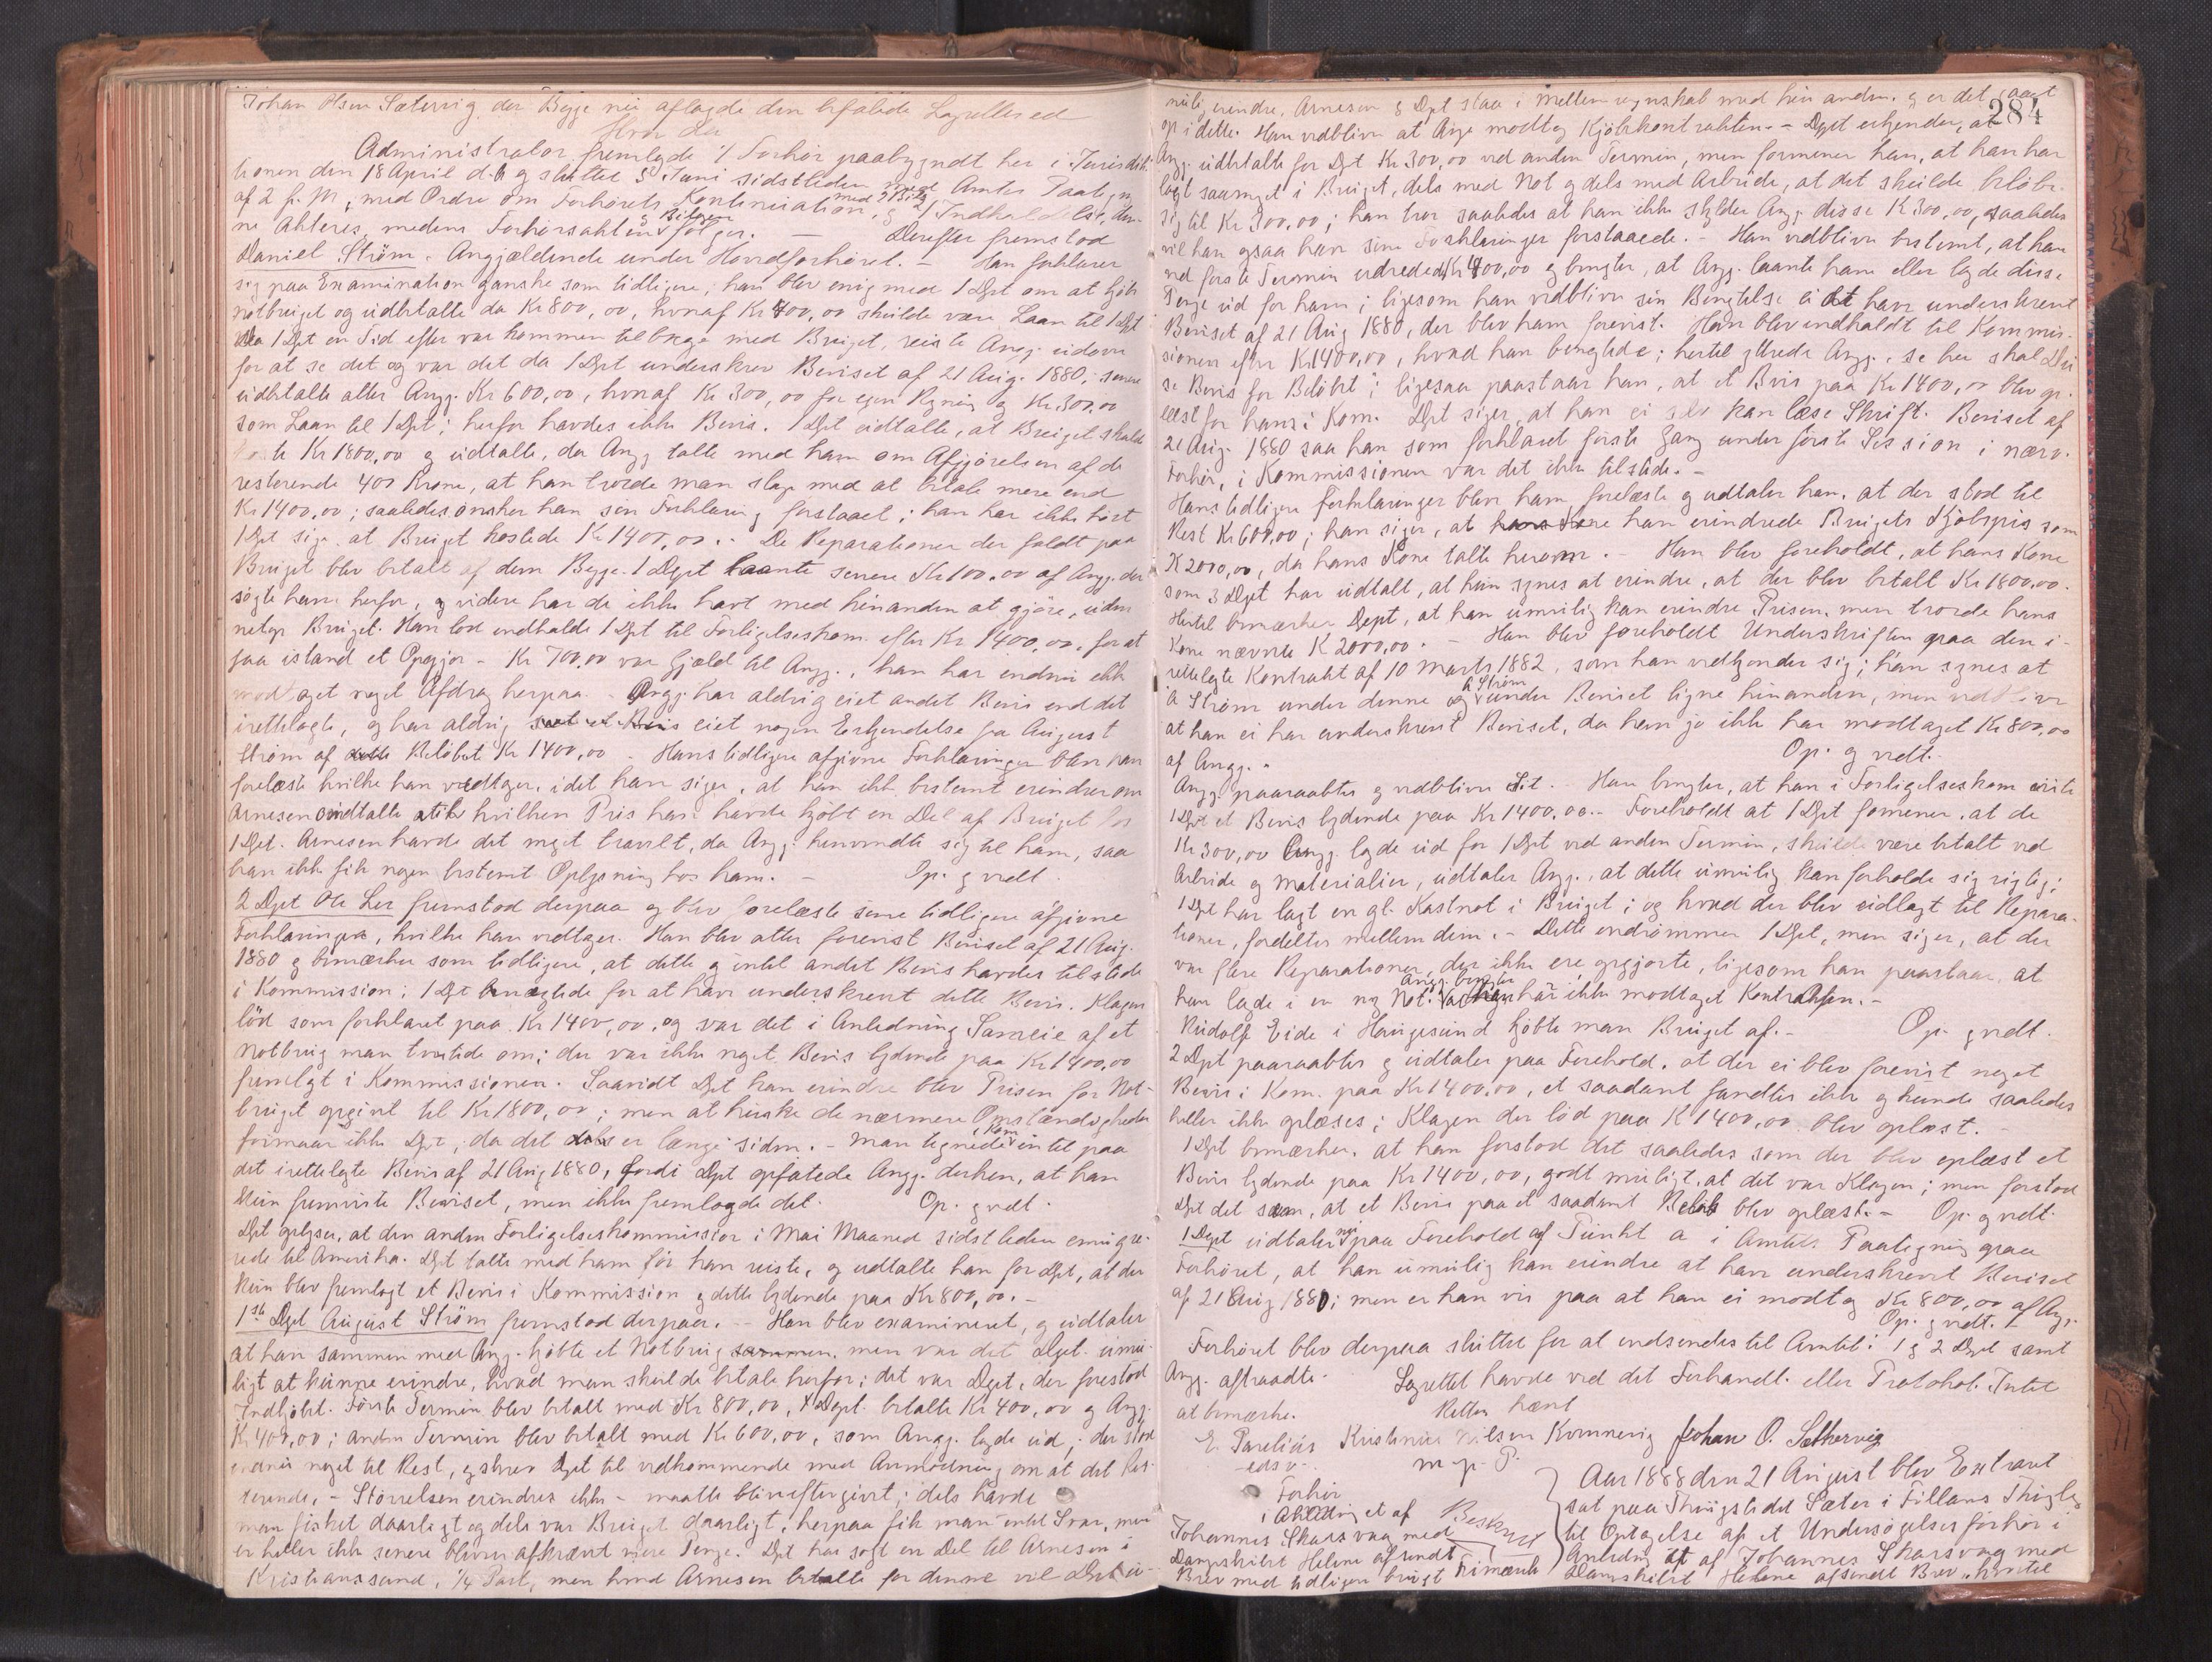 Johan Olsen Sætervig, der Begge nu aflagde den befalede Lagrettesed
Hvor da
Administrator fremlagde 1/ Forhør paabegyndt her i Jurisdik-
tionen den 18 April d.A. og sluttet 5 Juni sidstleden med Amtets Paategn.
af 2 f. M, med Ordre om Forhørets Kontinuation, med 3 Bilag & 2/ Indkaldelse, den-
ne Akteres, medens Forhørsakten & Bilagene følger. — Derefter fremstod
Daniel Strøm, Angjældende under Hovedforhøret. — Han forklarer
sig paa Examination ganske som tidligere; han blev enig med 1 Dpt om at kjøbe
notbruget og udbetalte da Kr 800,00, hvoraf Kr 400,00 skulde være Laan til 1 Dpt
Da 1 Dpt en Tid efter var kommen tilbage med Bruget, reiste Angj. udover
for at se det og var det da 1 Dpt underskrev Beviset af 21 Aug. 1880; senere
udbetalte atter Angj. Kr 600,00, hvoraf Kr. 300,00 for egen Regning og Kr. 300,00
som Laan til 1 Dpt; herfor havdes ikke Bevis. 1 Dpt udtalte, at Bruget skulde
koste Kr 1800,00 og udtalte, da Angj. talte med ham om Afgjørelsen af de
resterende 400 Krone, at han troede man slap med at betale mere end
Kr 1400,00; saaledes ønsker han sin Forklaring forstaaet; han har ikke hørt
1 Dpt sige, at Bruget kostede Kr 1400,00. - De Reparationer der faldt paa
Bruget blev betalt af dem Begge. 1 Dpt laante senere Kr 100.00 af Angj. der
søgte ham herfor, og videre har de ikke havt med hinanden at gjøre, uden
netop Bruget. Han lod indkalde 1 Dpt til Forligelseskom. efter Kr 1400,00, for at
faa istand et Opgjør - Kr 700,00 var Gjæld til Angj., han har endnu ikke
modtaget noget Afdrag herpaa. - Angj. har aldrig eiet andet Bevis end det
irettelagte, og har aldrig eiet nogen Erkjendelse fra August
Strøm af Beløbet Kr 1400,00. Hans tidligere afgivne Forklaringer blev ham
forelæste hvilke han vedtager, idet han siger, at han ikke bestemt erindrer om
Arnesen omtalte til hvilken Pris han havde kjøbt en Del af Bruget hos
1 Dpt. Arnesen havde det meget travelt, da Angj. henvendte sig til ham, saa
han ikke fik nogen bestemt Oplysning hos ham. — Op. & vedt.
2 Dpt Ole Ler fremstod derpaa og blev forelæste sine tidligere afgivne
Forklaringer, hvilke han vedtager. Han blev atter forevist Beviset af 21 Aug.
1880 og bemærker som tidligere, at dette og intet andet Bevis havdes tilstede
i Kommission; 1 Dpt benægtede for at have underskrevet dette Bevis. Klagen
lød som forklaret paa Kr 1400,00, og var det i Anledning Sameie af et
Notbrug man tvistede om; der var ikke noget Bevis lydende paa Kr 1400,00
fremlagt i Kommissionen. Saavidt Dpt kan erindre blev Prisen for Not-
bruget opgivet til Kr 1800,00; men at huske de nærmere Omstændigheder
formaar ikke Dpt, da det er længe siden. - Man tegnede i Kom intet paa
det irettelagte Bevis af 21 Aug 1880, fordi Dpt opfatede Angj. derhen, at han
kun fremviste Beviset, men ikke fremlagde det. Op. & vedt.
Dpt oplyser, at den anden Forligelseskommissær i Mai Maaned sidstleden emigre-
rede til Amerika. Dpt talte med ham før han reiste, og udtalte han for Dpt, at der
kun blev fremlagt et Bevis i Kommission og dette lydende paa Kr 800,00. -
1ste Dpt August Strøm fremstod derpaa. - Han blev examineret, og udtaler
at han sammen med Angj. kjøbte et Notbrug, men var det Dpt. umu-
ligt at kunne erindre, hvad man skulde betale herfor; det var Dpt, der forestod
Indkjøbet. Første Termin blev betalt med Kr 800,00, 1 Dept. betalte Kr 400,00 og Angj.
Kr 400,00; anden Termin blev betalt med Kr 600,00, som Angj. lagde ud; der stod
endnu noget til Rest, og skrev Dpt til vedkommende med Anmodning om at det Res-
terende, - Størrelsen erindres ikke - maatte blive eftergivet; dels havde
man fisket daarligt og dels var Bruget daarligt, herpaa fik man intet Svar, men
er heller ikke senere bleven afkrævet mere Penge. Dpt har solgt en Del til Arnesen i
Kristianssund, 1/4 Part, men hvad Arnesen betalte for denne vil Dpt u-
284
mulig erindre, Arnesen & Dpt staa i Mellemregnskab med hinanden, og er det gaaet
op i dette. Han vedbliver at Angj. modtog Kjøbekontrakten. - Dpt erkjender, at
Angj. udbetalte for Dpt Kr 300,00 ved anden Termin, men formener han, at han har
lagt saameget i Bruget, dels med Not og dels med Arbeide, at det skulde beløbe
sig til Kr 300,00; han tror saaledes at han ikke skylder Angj. disse Kr 300,00, saaledes
vil han ogsaa have sine Forklaringer forstaaede. - Han vedbliver bestemt, at han
ved første Termin udredede Kr 400,00 og benegter, at Angj. laante ham eller lagde disse
Penge ud for ham; ligesom han vedbliver sin Benegtelse ei at have underskrevet
Beviset af 21 Aug 1880, der blev ham forevist. Han blev indkaldt til Kommis-
sionen efter Kr 1400,00, hvad han benegtede; hertil yttrede Angj. "se her skal Du
se Bevis for Beløbet"; ligesaa paastaar han, at et Bevis paa Kr 1400,00 blev op-
læst for ham i Kom. Dpt siger, at han ei selv kan læse Skrift. Beviset af
21 Aug. 1880 saa han som forklaret første Gang under første Session i nærv.
Forhør, i Kommissionen var det ikke tilstede. -
Hans tidligere Forklaringer blev ham forelæste og udtaler han, at der stod til
Rest Kr 600,00; han siger, at han erindrede Brugets Kjøbspris som
K 2000,00, da hans Kone talte herom. - Han blev foreholdt, at hans Kone
som 3 Dpt har udtalt, at hun synes at erindre, at der blev betalt Kr 1800,00.
Hertil bemærker Dept, at han umulig kan erindre Prisen, men troede hans
Kone nævnte K 2000,00. - Han blev foreholdt Underskriften paa den i-
rettelagte Kontrakt af 10 Marts 1882, som han vedkjender sig; han synes at
A Strøm under denne og A Strøm under Beviset ligne hinanden, men vedbliver
at han ei har underskrevet Beviset, da han jo ikke har modtaget Kr 800,00
af Angj. - Op. og vedt.
Angj. paaraabtes og vedbliver Sit. - Han benegter, at han i Forligelseskom viste
1 Dpt et Bevis lydende paa Kr 1400,00. - Foreholdt at 1 Dpt formener, at de
Kr 300,00 Angj. lagde ud for 1 Dpt ved anden Termin, skulde være betalt ved
Arbeide og Materialier, udtaler Angj., at dette umulig kan forholde sig rigtig;
1 Dpt har lagt en gl. Kastnot i Bruget; og hvad der blev udlagt til Repara-
tioner, fordeltes mellem dem. - Dette indrømmer 1 Dpt, men siger, at der
var flere Reparationer, der ikke ere opgjorte, ligesom han paastaar at
han lagde i en ny Not. Angj. benegter har ikke modtaget Kontrakten. -
Rudolf Eide i Haugesund kjøbte man Bruget af. - Op. & vedt.
2 Dpt paaraabtes og udtaler paa Forehold, at der ei blev forevist noget
Bevis i Kom. paa Kr 1400,00, et saadant fandtes ikke og kunde saaledes
heller ikke oplæses; Klagen der lød paa K 1400,00 blev oplæst. -
1 Dpt bemærker, at han forstod det saaledes som der blev oplæst et
Bevis lydende paa Kr 1400,00, godt muligt, at det var Klagen; men forstod
Dpt det som, at et Bevis paa et saadant Beløb blev oplæst. - Op. og vedt.
1 Dept udtaler nu paa Forehold af Punkt a i Amtets Paategning paa
Forhøret, at han umulig kan erindre at have underskrevet Beviset
af 21 Aug 1880; men er han vis paa at han ei modtog Kr 800,00 af Angj.
Op. & vedt.
Forhøret blev derpaa sluttet for at indsendes til Amtet. 1 & 2 Dpt samt
Angj. aftraadte. Lagrettet havde ved det Forhandl. eller Protokol. Intet
at bemærke. Retten hævet
E. Parelius Kristinius Nilsen Kvernevig Johan O. Sæthervig
edsv. m. p. P.
Forhør
i Anledning et af
Johannes Skarsvaag med
Dampskibet Helene afsendt
Brev med tidligere brugt Frimærke
Beskrevet
Aar 1888 den 21 August blev Extraret
sat paa Thingstedet Sæter i Fillans Thinglag
til Optagelse af et Undersøgelsesforhør i
Anledning af et af Johannes Skarsvaag med
Dampskibet Helene afsendt Brev, hvortil